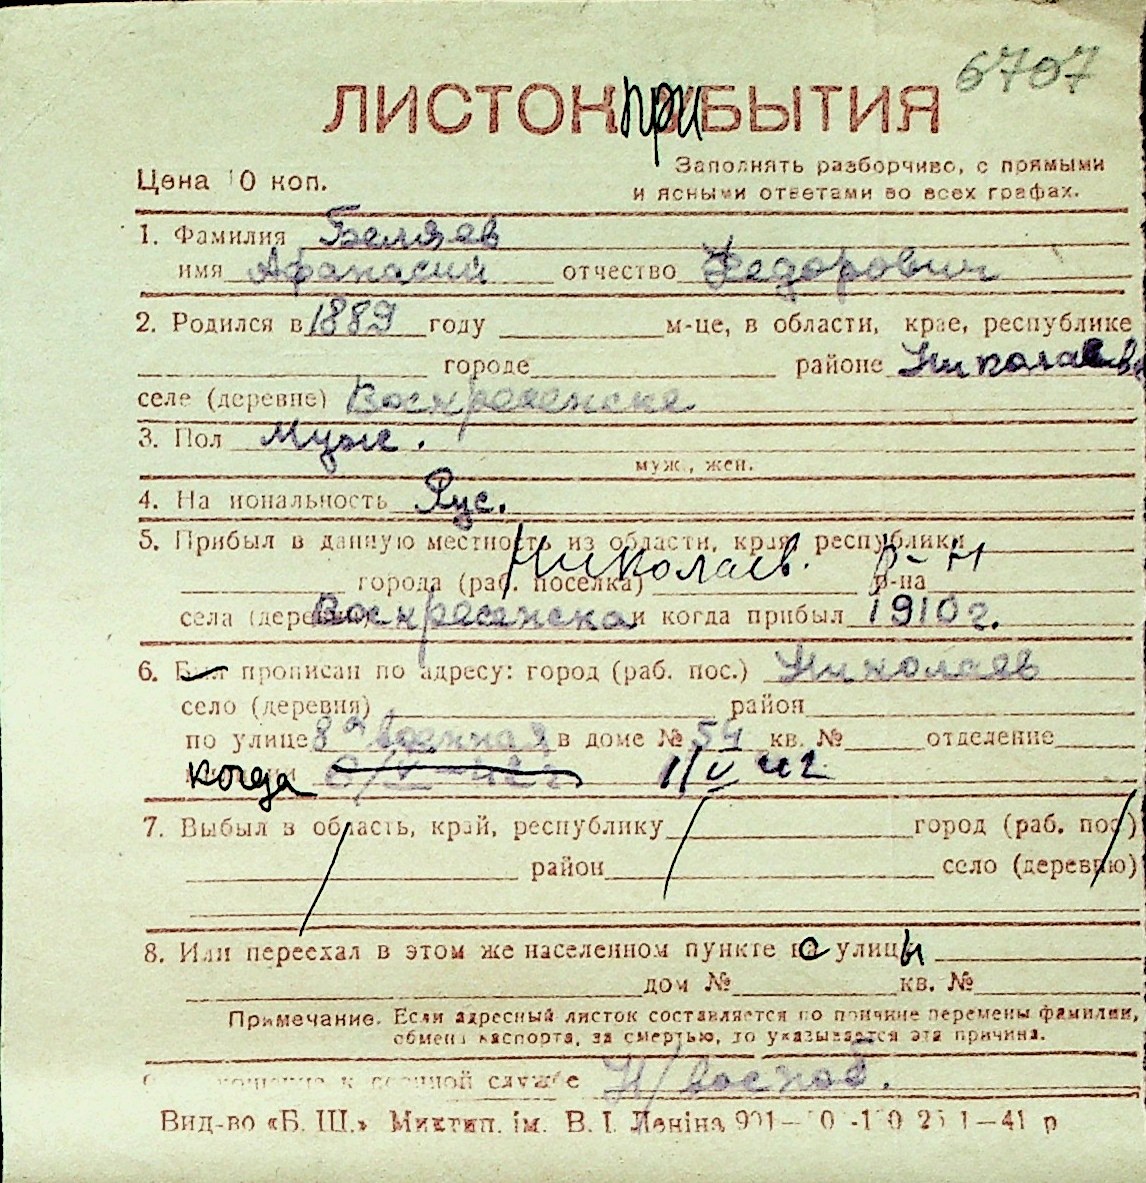 6707
ЛИСТОК при БЫТИЯ
Заполнять разборчиво, с прямыми
Цена 10 коп.
и ясными ответами во всех графах.
1. Фамилия Беляев
имя Афанасий отчество Федорович
2. Родился в 1889 году м-це, в области, крае, республике
городе районе Николаевс
селе (деревне) Воскресенске
3. Пол Муж.
муж., жен.
4. Национальность Рус.
5. Прибыл в данную местность из области, края республики
города (раб. поселка) Николаев. р-н р-на
села (деревни) Воскресенска и когда прибыл 1910 г.
6. Был прописан по адресу: город (раб. пос.) Николаев
село (деревня) район
по улице 8а военная в доме № 54 кв. № отделение
когда 1/V 42
7. Выбыл в область, край, республику город (раб. пос)
район село (деревню)
8. Или переехал в этом же населенном пункте с улицы
дом № кв. №
Примечание. Если адресный листок составляется по причине перемены фамилии,
обмена паспорта, за смертью, то указывается эта причина.
к военной службе Н/воен об.
Вид-во «Б. Ш.» Миктип. ім. В. І. Леніна